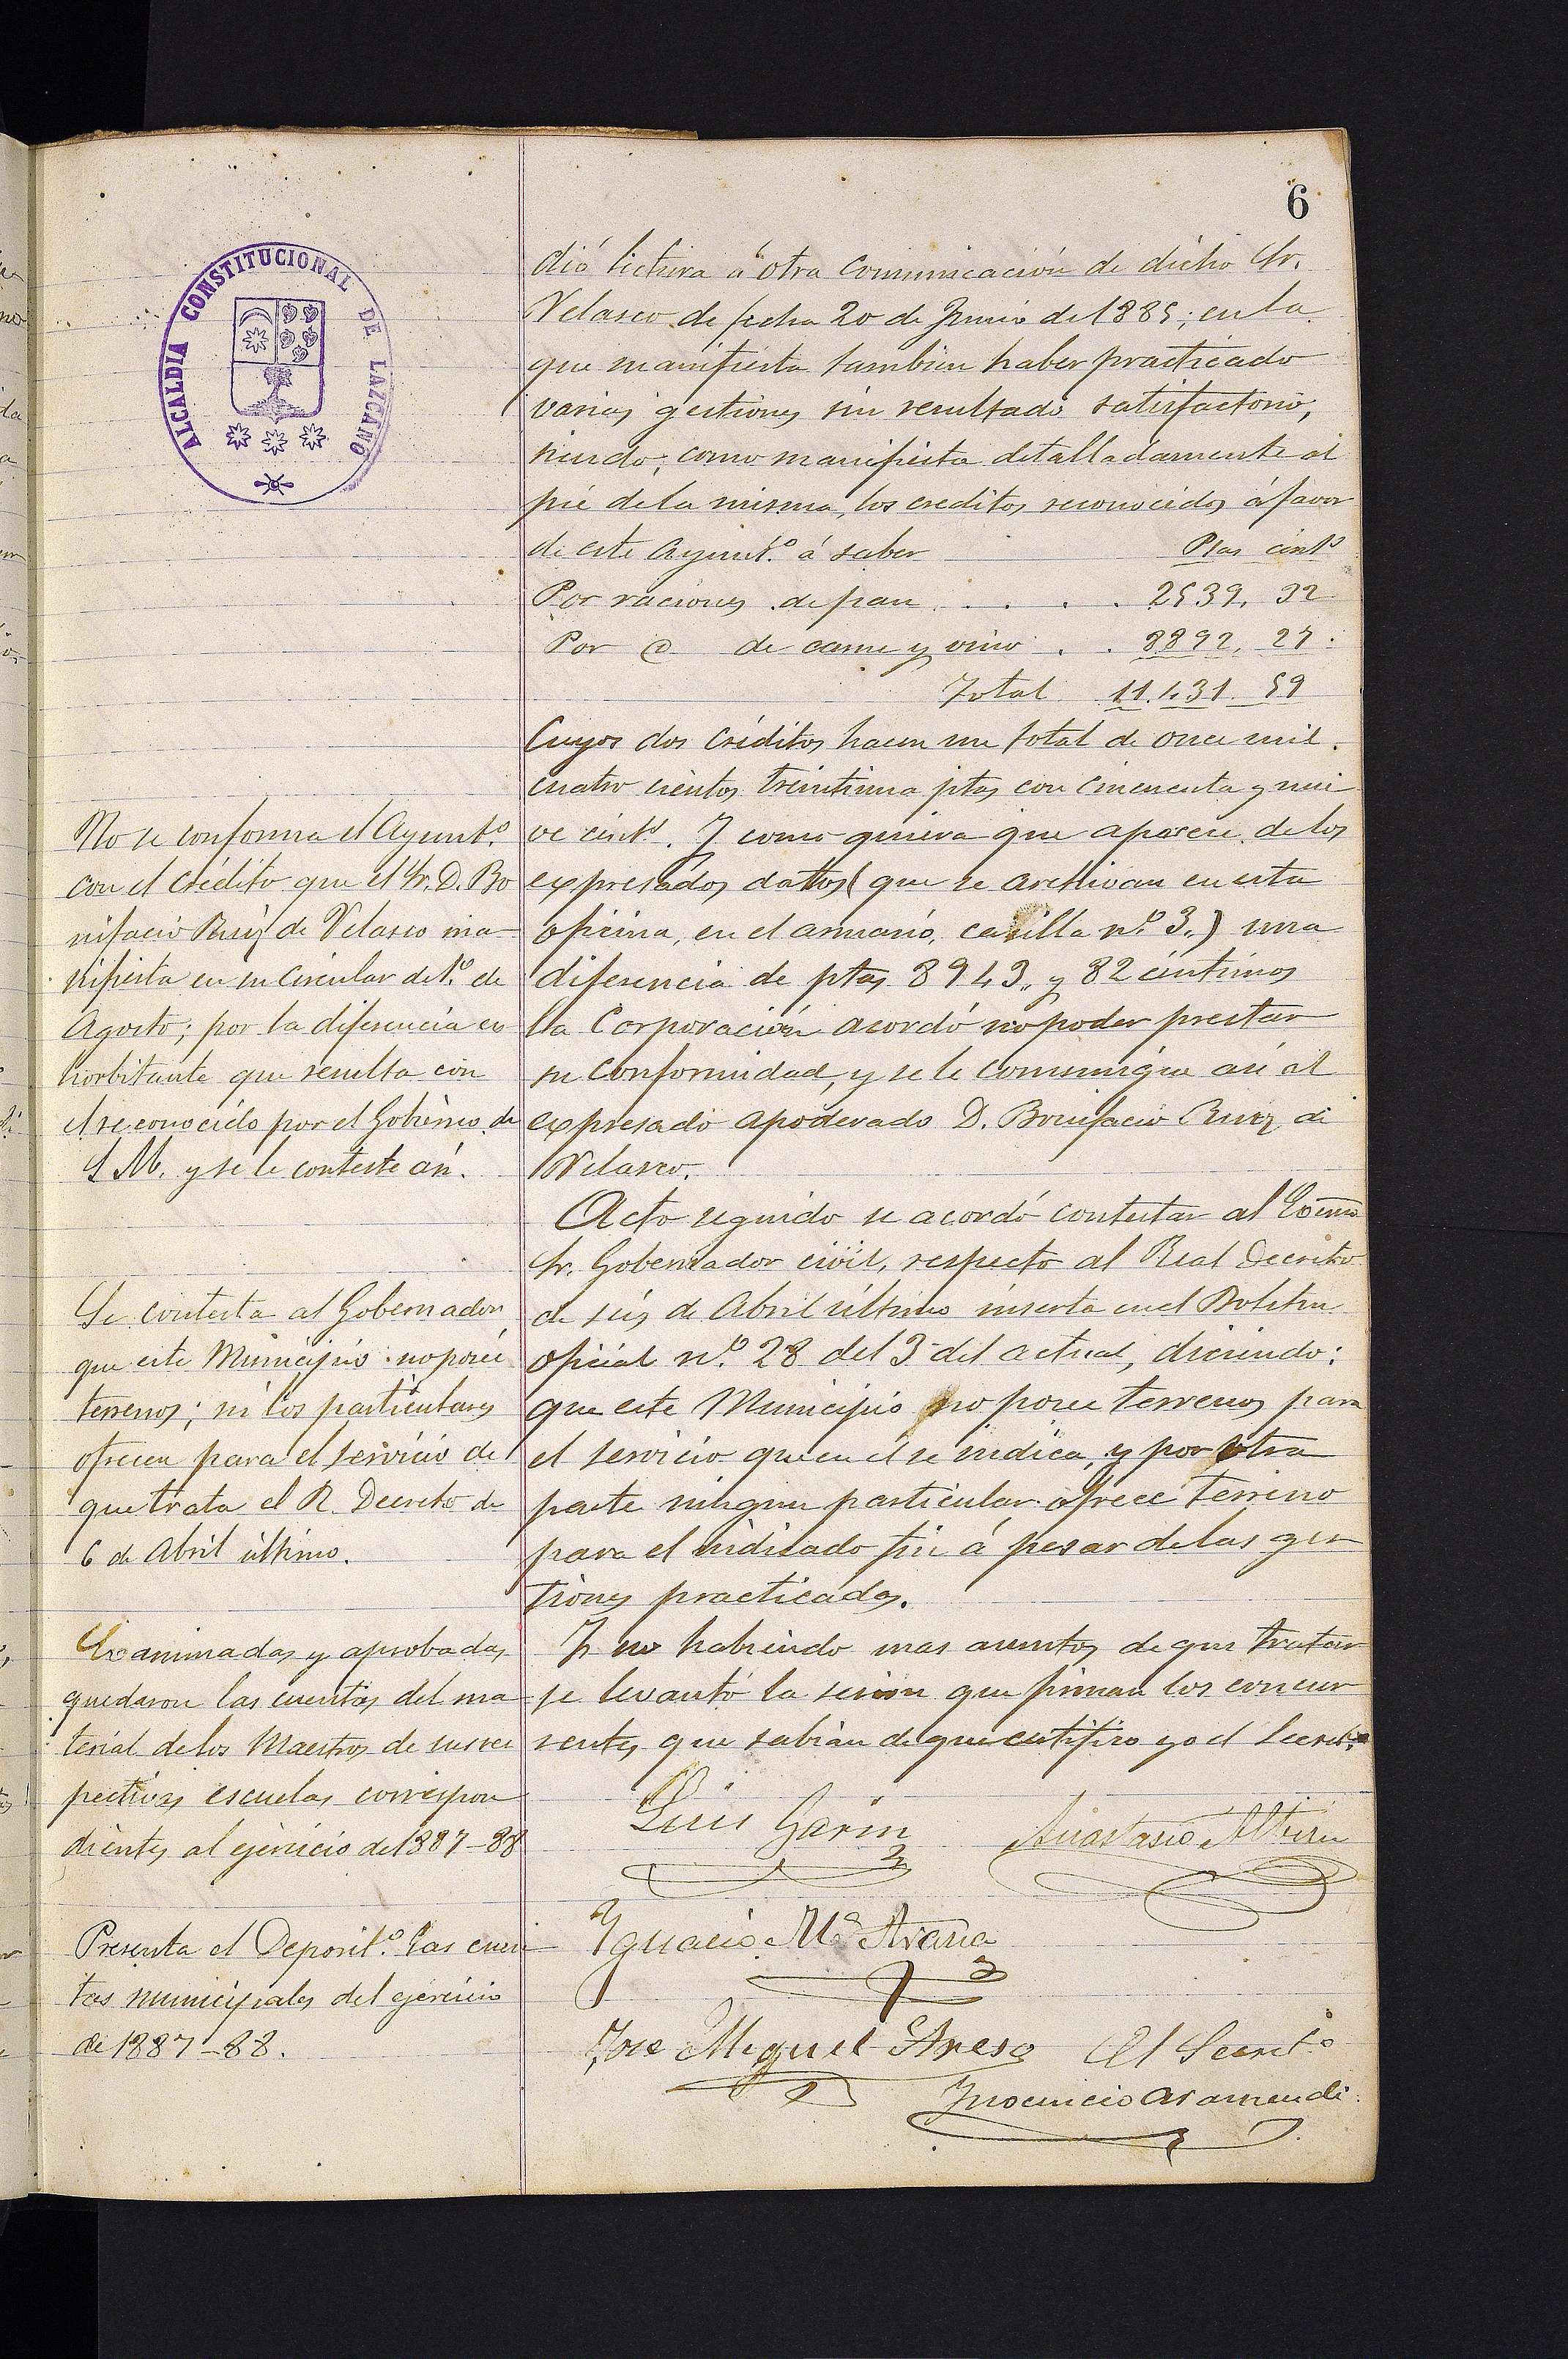 6
ALCALDIA CONSTITUCIONAL DE LAZCANO
dió lectura á otra comunicación de dicho Sr.
Velasco de fecha 20 de Junio de 1885; en la
que manifiesta tambien haber practicado
varias gestiones sin resultado satisfactorio,
siendo; como manifiesta detalladamente al
pié de la misma, los creditos reconocidos á favor
de este Ayunt.º á saber Ptas cént.s
Por raciones de pan . . . . 2539, 32
Por @ de carne y vino . . 8892, 27
Total 11.431. 59
Cuyos dos créditos hacen un total de once mil
cuatro cientos treintiuna ptas con cincuenta y nue
ve cént.s. Y como quiera que aparece de los
expresados datos (que se archivan en esta
oficina, en el armario, casilla n.º 3.) una
diferencia de ptas 8943,, y 82 céntimos
la Corporación acordó no poder prestar
su conformidad, y se le comunique asi al
expresado apoderado D. Bonifacio Ruiz de
Velasco.
Acto seguido se acordó contestar al Excmo
Sr. Gobernador civil, respecto al Real Decreto
de seis de Abril último inserta en el Boletin
oficial n.º 28 del 3 del actual, diciendo:
que este Municipio no posee terrenos para
el servicio que en el se indica, y por otra
parte ningun particular ofrece terreno
para el indicado fin á pesar de las ges
tiones practicadas.
Y no habiendo mas asuntos de que tratar
se levantó la sesion que firman los concur
rentes que sabian de que certifico yo el Secret.º
Luis Garin
Anastasio Alberu
Ygnacio M.ª Arana
Jose Miguel Areso El Secret.º
Inocencio Aramendi.
No se conforma el Ayunt.º
con el crédito que el Sr. D. Bo
nifacio Ruiz de Velasco ma-
nifiesta en su circular de 1.º de
Agosto; por la diferencia ex
horbitante que resulta con
el reconocido por el Gobierno de
S. M. y se le conteste asi.
Se contesta al Gobernador
que este Municipio no poseé
terrenos; ni los particulares
ofrecen para el servicio de
que trata el R. Decreto de
6 de Abril último.
Examinadas y aprobadas
quedaron las cuentas del ma
terial de los Maestros de sus res
pectivas escuelas correspon
dientes al ejercicio de 1887-88
Presenta el Deposit.º las cuen
tas municipales del ejercicio
de 1887-88.